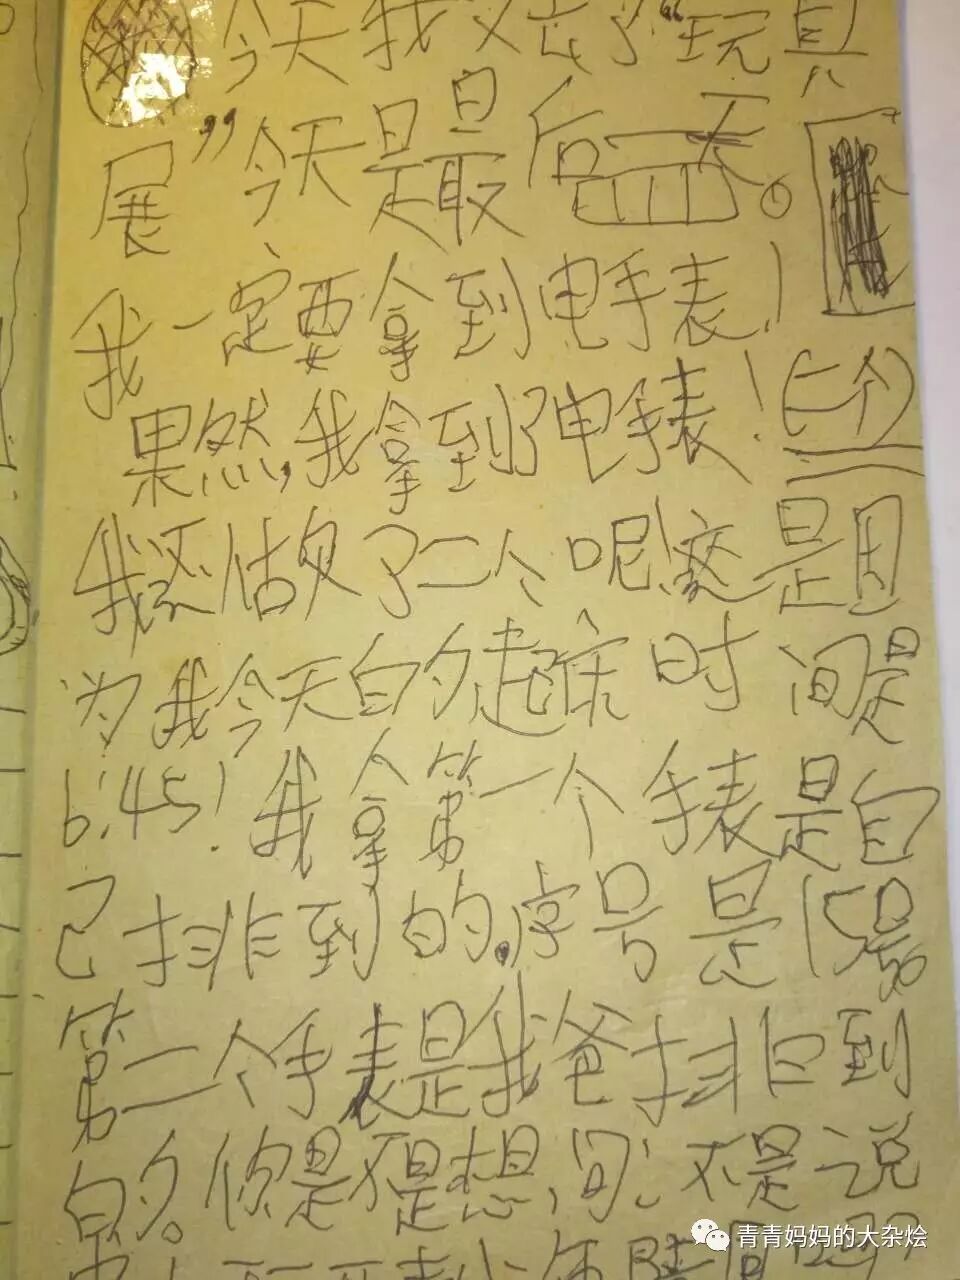 今天我又去了“玩具
展”今天是最后一天。
我一定要拿到电手表！
果然，我拿到了电手表！(二个)
我还做了二个呢！这是因
为我今天的起床时间是
6:45！我拿第一个手表是自
己排到的，序号是15号
第二个手表是我爸排到
的。你是不是想问：不是说
青青妈妈的大杂烩